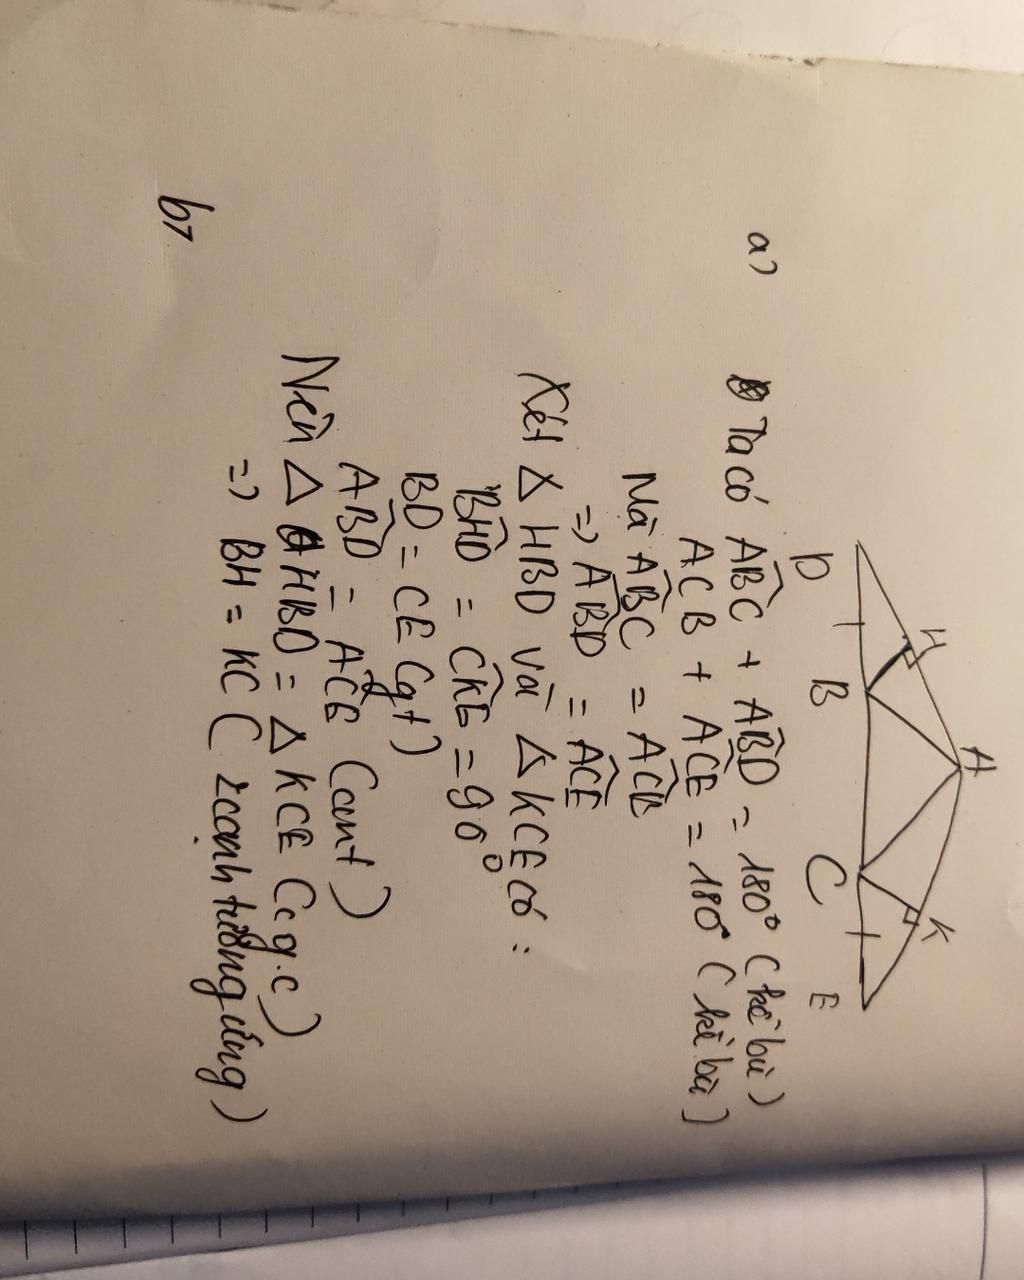 A
H
K
D
B
C
E
a) Ta có ABC + ABD = 180° (kề bù)
ACB + ACE = 180° (kề bù)
Mà ABC = ACB
=> ABD = ACE
Xét Δ HBD và Δ KCE có :
BHD = CKE = 90°
BD = CE (gt)
ABD = ACE (cmt)
Nên Δ HBD = Δ KCE (c.g.c)
=> BH = KC ( 2 cạnh tương ứng )
b)